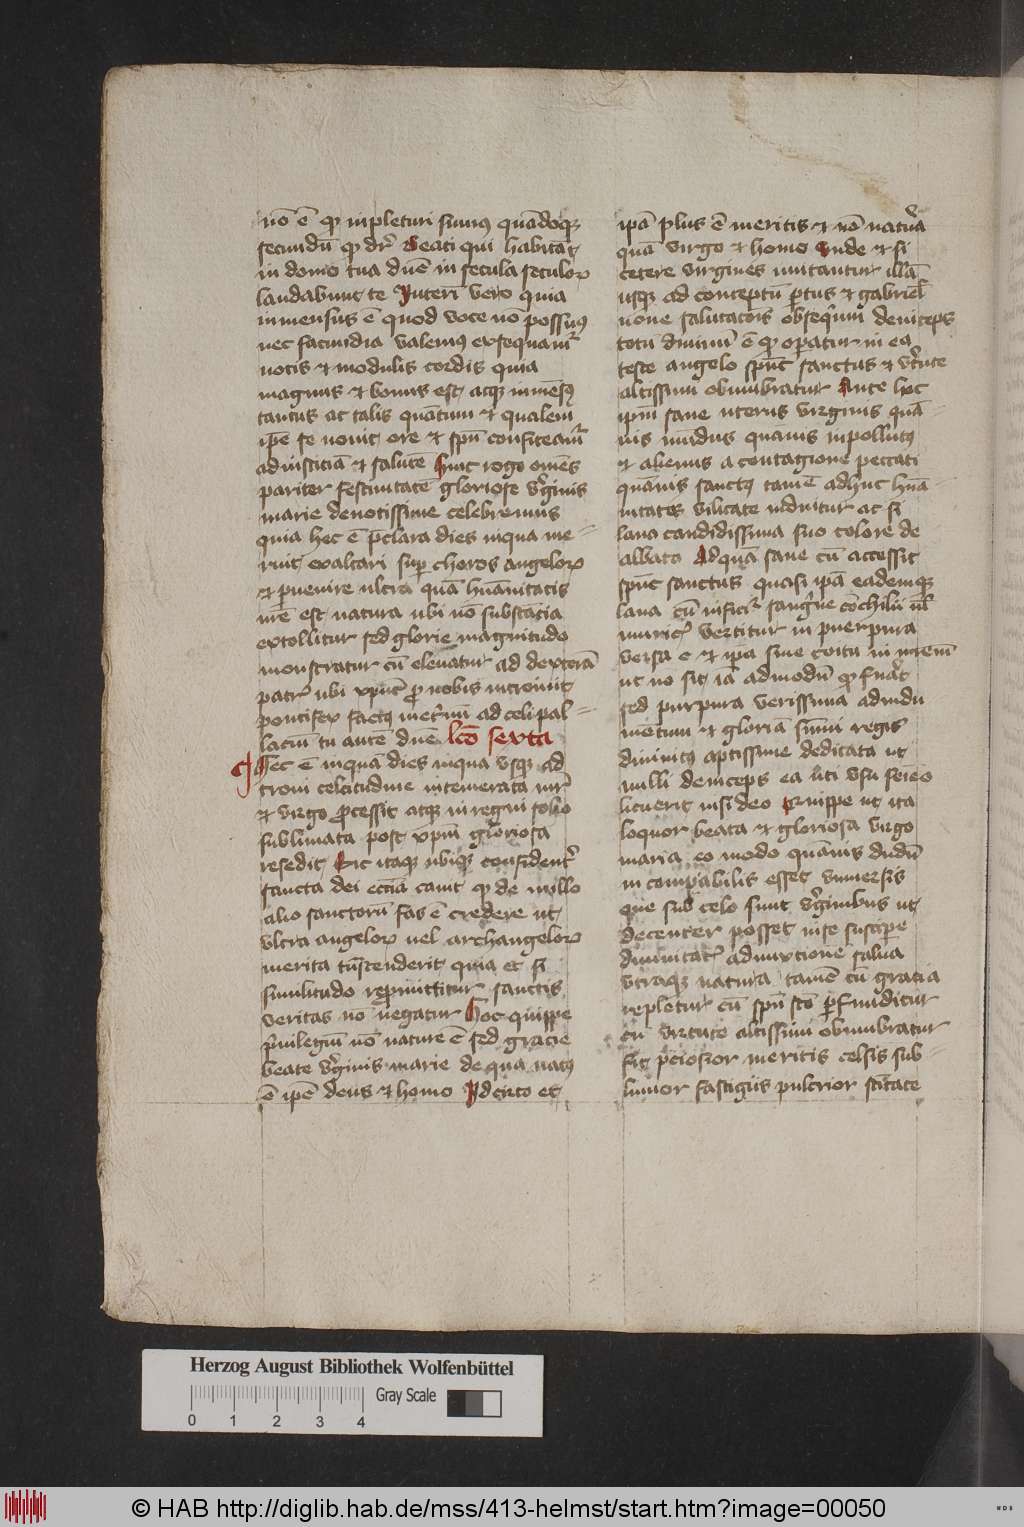 nō ē qꝫ inpleturi sumꝰ quādoqꝫ
secundū qꝫ dr̄ Beati qui habitāt
in domo tua dn̄e in secula seculoꝝ
laudabunt te Interī vero quia
inmensus ē quod voce nō possumꝰ
nec facundia valemꝰ exsequamꝰ
uotis et modulis cordis quia
magnus et bonus est atqꝫ inmēsꝰ
tantus ac talis quātum et qualem
ip̄e se nouit ore et sp̄u confiteamꝰ
ad iusticiā et salutē hinc rogo om̄es
pariter festiuitatē gloriose v̓ginis
marie deuotissime celebremus
quia hec ē p̄clara dies inqua me-
ruit exaltari sup choros angeloꝝ
et puenire ultra quā hūanitatis
nr̄e est natura ubi nō substācia
extollitur sed glorie magnitudo
monstratur cū eleuatur ad dexterā
patrꝭ ubi xp̄us pro nobis introiuit
pontifex factꝰ in et̓num ad celi pal-
lacium tu autē dn̄e lcō sexta
Hec ē inquā dies inqua vsqꝫ ad
troni celcitudinē intemerata mr̄
et virgo processit atqꝫ in regni solio
sublimata post xpm̄ gloriosa
resedit Sic itaqꝫ ubiqꝫ confident̓
sancta dei eccīa canit qꝫ de nullo
alio sanctorū fas ē credere ut
vltra angeloꝝ uel archangeloꝝ
merita tn̄scenderit quia et si
similitudo repromittitur sanctis
veritas nō negatur Hoc quippe
p̓uilegiū nō nature ē sed gracie
beate v̓ginis marie de qua natꝰ
ē ip̄e deus et homo Idcirco et
ipā plus ē meritis et nō natura
quā virgo et homo Unde et si
cetere virgines imitantur illā
usqꝫ ad conceptū ptus et gabriel̄
noue salutacōis obsequiū deinceps
totū diuinū ē qꝫ operatur in ea
teste angelo sp̄us sanctus et v̓tute
altissimi obumbratur Ante hec
ip̄m sane uterus virginis quā-
uis mūdus quāuis inpollutꝰ
et alienus a contagione peccati
quāuis sanctꝰ tamē adhuc hūa-
nitatis vilitate induitur ac si
lana candidissima suo colore de
albata Ad quā sane cū accessit
sp̄us sanctus quasi ipā eademqꝫ
lana cū infici̓ sangwine conchilii ul̄
muricꝭ vertitur in purpura
versa ē et ipa sine coitu in mr̄em
ut nō sit iā admodū qꝫ fuerat
sed purpura verissima ad indu
mentum et gloriā sūmi regis
diuinitꝰ aptissime dedicata ut
nulli deinceps ea uti vsu femīeo
licuerit nisi deo Quippe ut ita
loquor beata et gloriosa virgo
maria eo modo quāuis dudū
in compabilis esset vniuersis
que sub celo sunt v̓ginibus ut
decenter posset in se suscipe
diuinitatꝭ admixtione salua
vtraqꝫ natura tamē cū gracia
repletur cū sp̄u scō pfunditur
cū virtute altissimi obumbratur
fit p̄ciosior meritis celsis sub-
limior fastigiis pulcrior sc̄itate
Herzog August Bibliothek Wolfenbüttel
Gray Scale
0 1 2 3 4
© HAB http://diglib.hab.de/mss/413-helmst/start.htm?image=00050